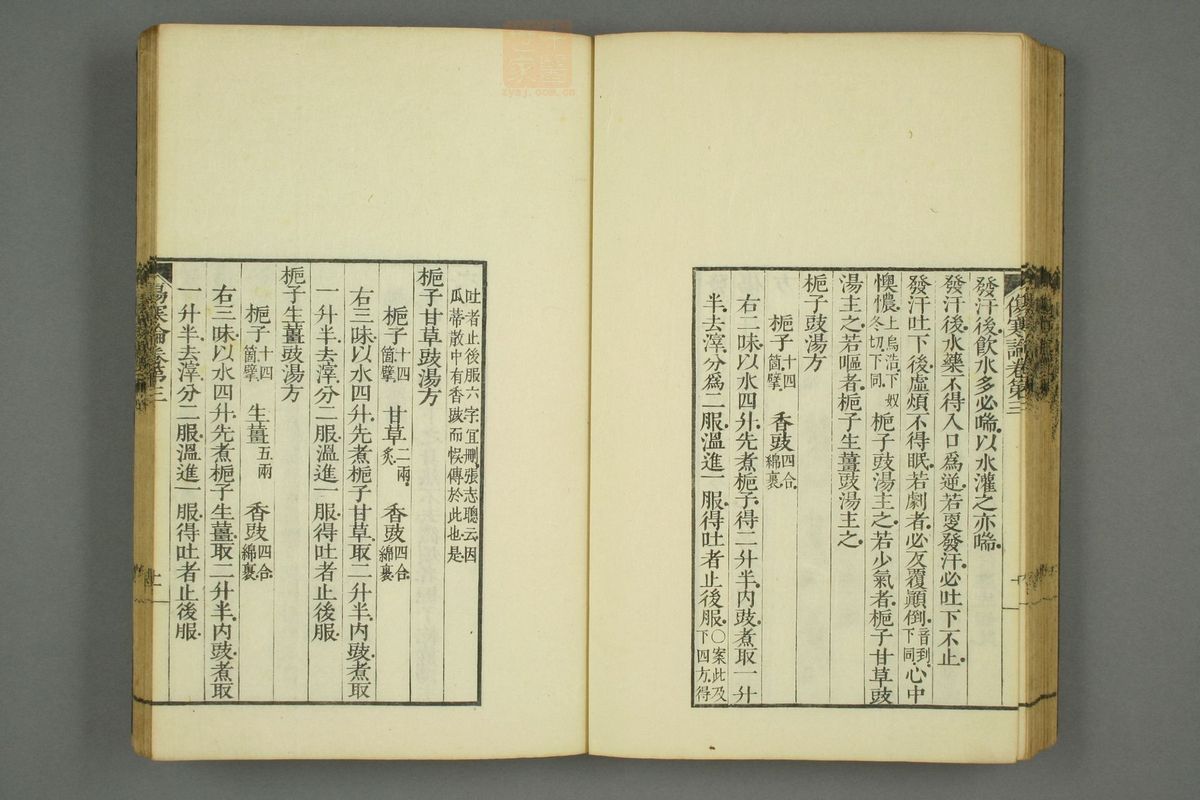 傷寒論卷第三
發汗後飲水多必喘以水灌之亦喘
發汗後水藥不得入口爲逆若更發汗必吐下不止
發汗吐下後虛煩不得眠若劇者必反覆顚倒音到下同心中
懊憹上烏浩下奴冬切下同梔子豉湯主之若少氣者梔子甘草豉
湯主之若嘔者梔子生薑豉湯主之
梔子豉湯方
梔子十四箇擘 香豉四合綿裹
右二味以水四升先煮梔子得二升半內豉煮取一升
半去滓分爲二服溫進一服得吐者止後服○案此及下四方得
吐者止後服六字宜刪張志聰云因瓜蒂散中有香豉而悞傳於此也是
梔子甘草豉湯方
梔子十四箇擘 甘草二兩炙 香豉四合綿裹
右三味以水四升先煮梔子甘草取二升半內豉煮取
一升半去滓分二服溫進一服得吐者止後服
梔子生薑豉湯方
梔子十四箇擘 生薑五兩 香豉四合綿裹
右三味以水四升先煮梔子生薑取二升半內豉煮取
一升半去滓分二服溫進一服得吐者止後服
傷寒論卷第三
zysj.com.cn